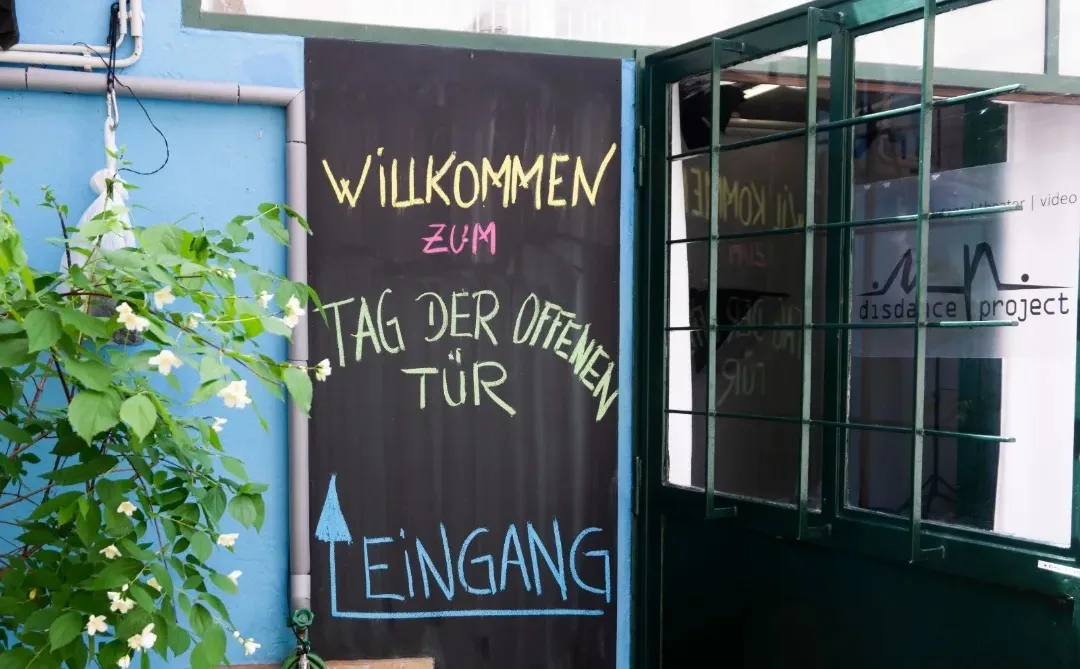 WiLLKOMMEN
ZUM
TAG DER OFFENEN
TÜR
EiNGANG
| video
disdance project